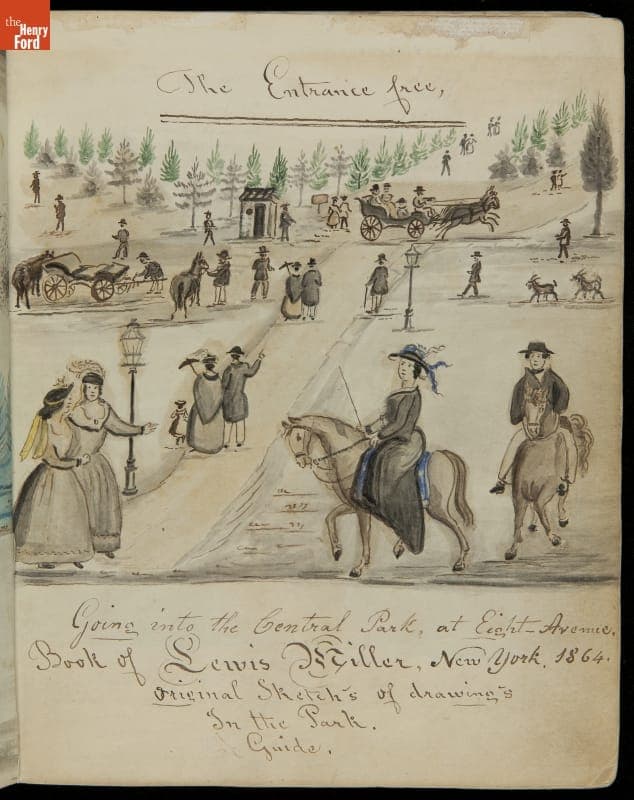 the
Henry
Ford
The Entrance free,
Going into the Central Park, at Eight-Avenue.
Book of Lewis Miller, New York. 1864.
original Sketch's of drawing's
In the Park.
Guide.